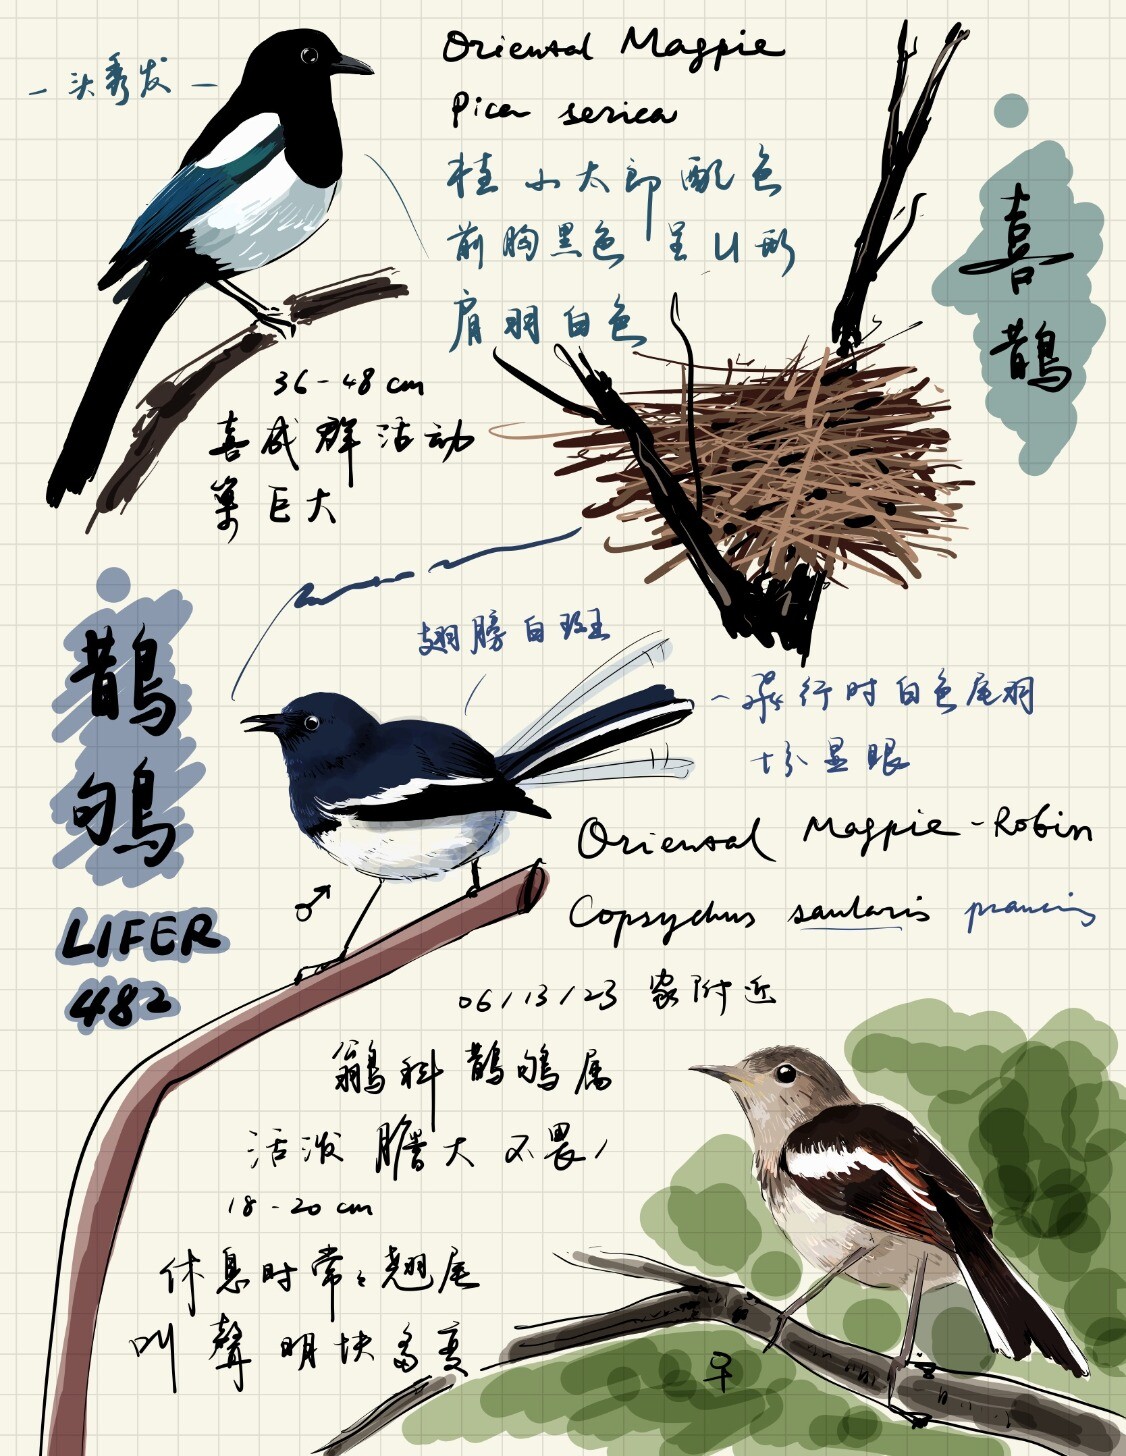 一头秀发一
Oriental Magpie
Pica serica
桂小太郎配色
前胸黑色 呈U形
肩羽白色
喜鹊
36-48 cm
喜成群活动
巢巨大
鹊鸲
LIFER
482
翅膀白斑
飞行时白色尾羽
十分显眼
Oriental Magpie-Robin
Copsychus saularis
♂
06/13/23 家附近
鹟科 鹊鸲属
活泼 胆大 不畏人
18-20 cm
休息时常常翘尾
叫聲 明快多变
♀